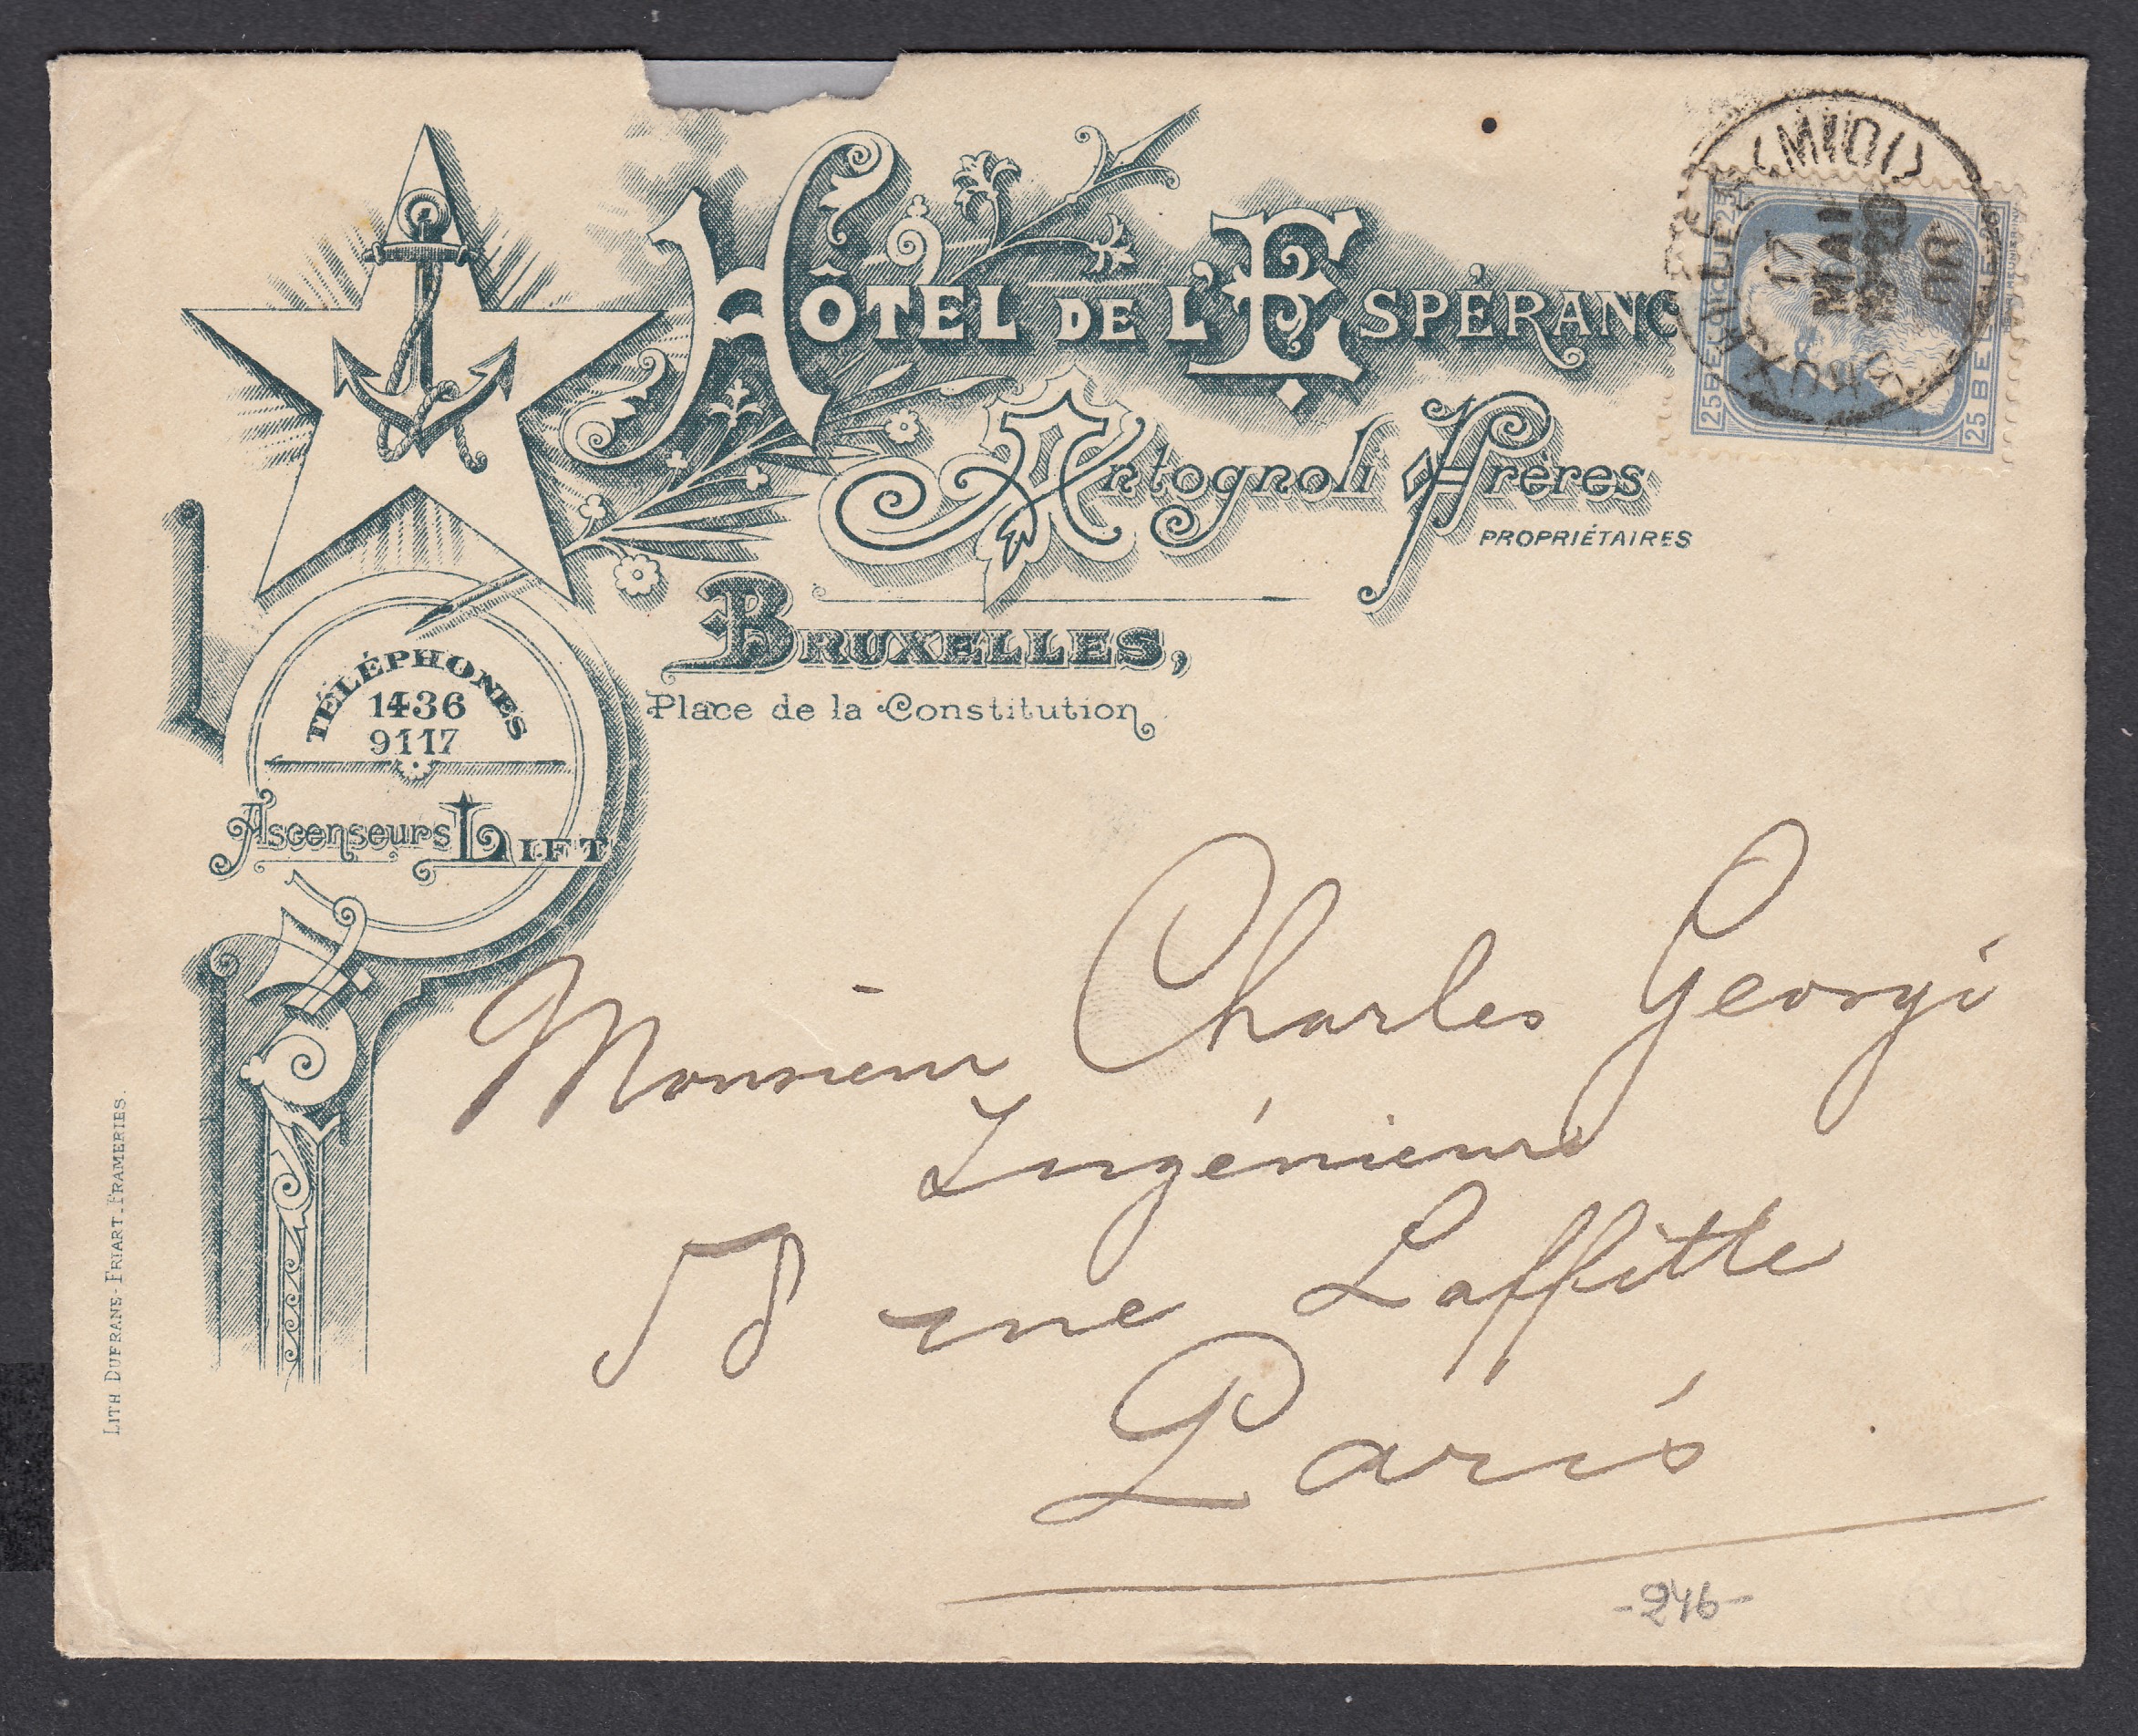 HÔTEL DE L'ESPÉRANC
Antognoli Frères
PROPRIÉTAIRES
BRUXELLES,
Place de la Constitution
TÉLÉPHONES
1436
9117
Ascenseurs LIFT
BRUXELLES (MIDI)
17
MAI
25 BELGIQUE 25
25 BELGIE 25
Monsieur Charles Georgi
Ingénieur
rue Laffitte
Paris
-246-
LITH DUFRANE-FRIART_FRAMERIES.